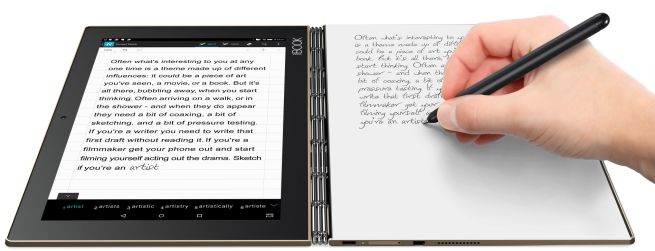 Often what's interesting to you at any
one time is a theme made up of different
influences: It could be a piece of art
you've seen, a movie, or a book. But it's
all there, bubbling away, when you start
thinking. Often arriving on a walk, or in
the shower - and when they do appear
they need a bit of coaxing, a bit of
sketching, and a bit of pressure testing.
If you're a writer you need to write that
first draft without reading it. If you're a
filmmaker get your phone out and start
filming yourself acting out the drama. Sketch
if you're an artist
1 artist 2 artists 3 artistic 4 artistry 5 artistically 6 artiste
Often what's interesting to you
is a theme made up of diff
could be a piece of art you
book. But it's all there,
start thinking. Often a
shower - and when the
of coaxing, a bit of
pressure testing. If yo
write that first draf
filmmaker get your
filming yourself
you're an artist